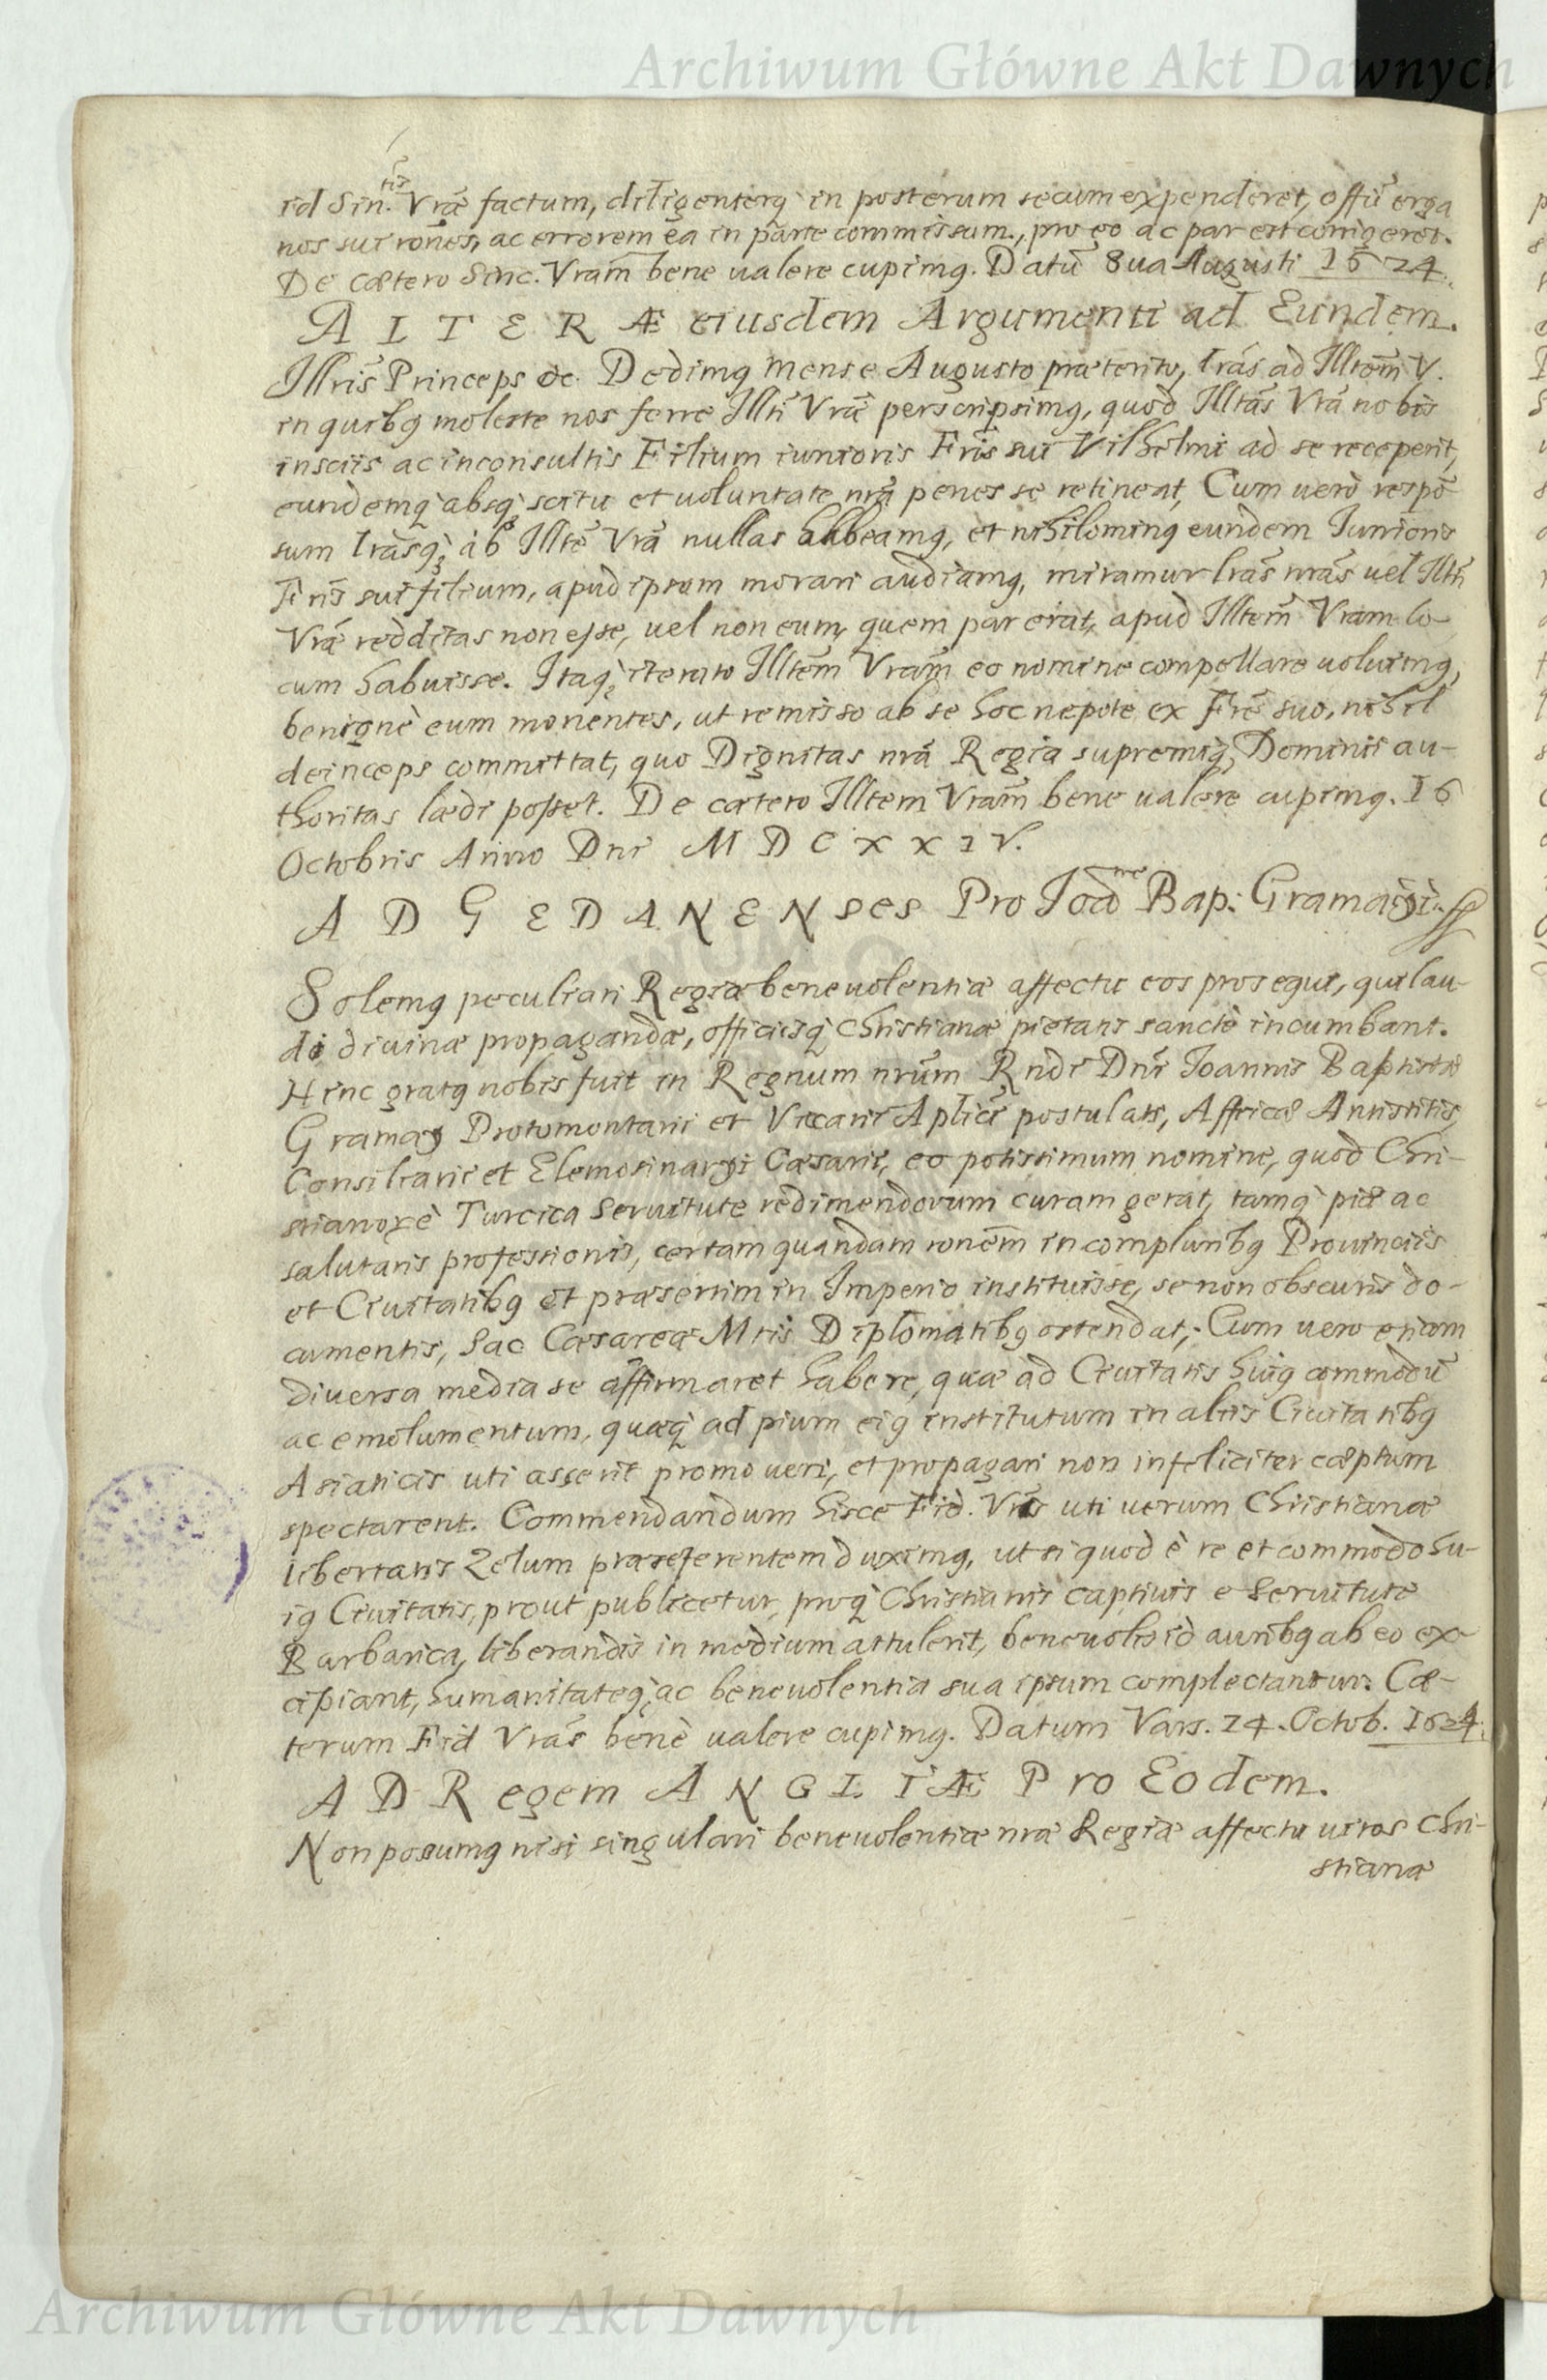 Archiwum Główne Akt Dawnych
id Sin.tis Vræ factum, diligenterq́ in posterum secum expenderet, offiī erga
nos sui rones, ac errorem ea in parte commissum, pro eo ac par est corrigeret.
De cætero Sinc. Vram bene ualere cupimq. Datū 8ua Augusti 1624.
A L T E R Æ eiusdem Argumenti ad Eundem.
Illris Princeps &c. Dedimq mense Augusto præterito, lras ad Illtem V.
in quibq moleste nos ferre Illti Vræ perscripsimq, quod Illtas Vra nobis
insciis ac inconsultis Filium iunioris Fris sui Vilhelmi ad se receperit,
eundemq́ absq́ scitu et uoluntate nra penes se retineat, Cum uerò respō
sum lrasq́ ab Illte Vra nullas habeamq, et nihilominq eundem Iunioris
Fris sui filium, apud ipsum morari audiamq, miramur lras nras uel Illti
Vræ redditas non esse, uel non eum, quem par erat, apud Illtem Vram lo-
cum habuisse. Itaq́ iterato Illtem Vram eo nomine compellare uoluimq,
benignè eum monentes, ut remisso ab se hoc nepote ex Fre suo, nihil
deinceps committat, quo Dignitas nra Regia supremiq́ Dominii au-
thoritas lædi posset. De cætero Illtem Vram bene ualere cupimq. 16
Octobris Anno Dni M D C X X I V.
A D G E D A N E N S e s Pro Joāne Bap: Gramaÿi.
Solemq peculiari Regiæ beneuolentiæ affectu eos prosequi, qui lau-
di diuinæ propagandæ, officiisq́ Christianæ pietatis sanctè incumbant.
Hinc gratq nobis fuit in Regnum nrum Rndi Dni Ioannis Baptistæ
Gramaÿ Protomontarii et Vicarii Aplici postulati, Affricæ Antistitis,
Consiliarii et Elemosinarÿi Cæsarii, eo potissimum nomine, quod Chri-
stianorū è Turcica Seruitute redimendorum curam gerat, tamq́ piæ ac
salutaris professionis, certam quandam ronem in compluribq Prouinciis
et Ciuitatibq et præsertim in Imperio instituisse, se non obscuris do-
cumentis, Sac Cæsareæ Mtis Diplomatibq ostendat, Cum uero etiam
diuersa media se affirmaret habere, quæ ad Ciuitatis huiq commodū
ac emolumentum, quæq́ ad pium eiq institutum in aliis Ciuitatibq
Asiaticis uti asserit promoueri, et propagari non infeliciter cæptum
spectarent. Commendandum hisce Fid. Vris uti uerum Christianæ
libertatis Zelum præseferentem duximq, ut si quod è re et commodo hu-
iq Ciuitatis, prout publicetur, proq́ Christianis captiuis e Seruitute
Barbarica, liberandis in medium attulerit, beneuolis id auribq ab eo ex-
cipiant, humanitateq́ ac beneuolentia sua ipsum complectantur. Cæ-
terum Fid Vras benè ualere cupimq. Datum Vars. 14. Octob. 1624.
A D R egem A N G L I Æ P ro Eodem.
Non possumq nisi singulari beneuolentiæ nræ Regiæ affectu uiros Chri-
stianæ
Archiwum Główne Akt Dawnych